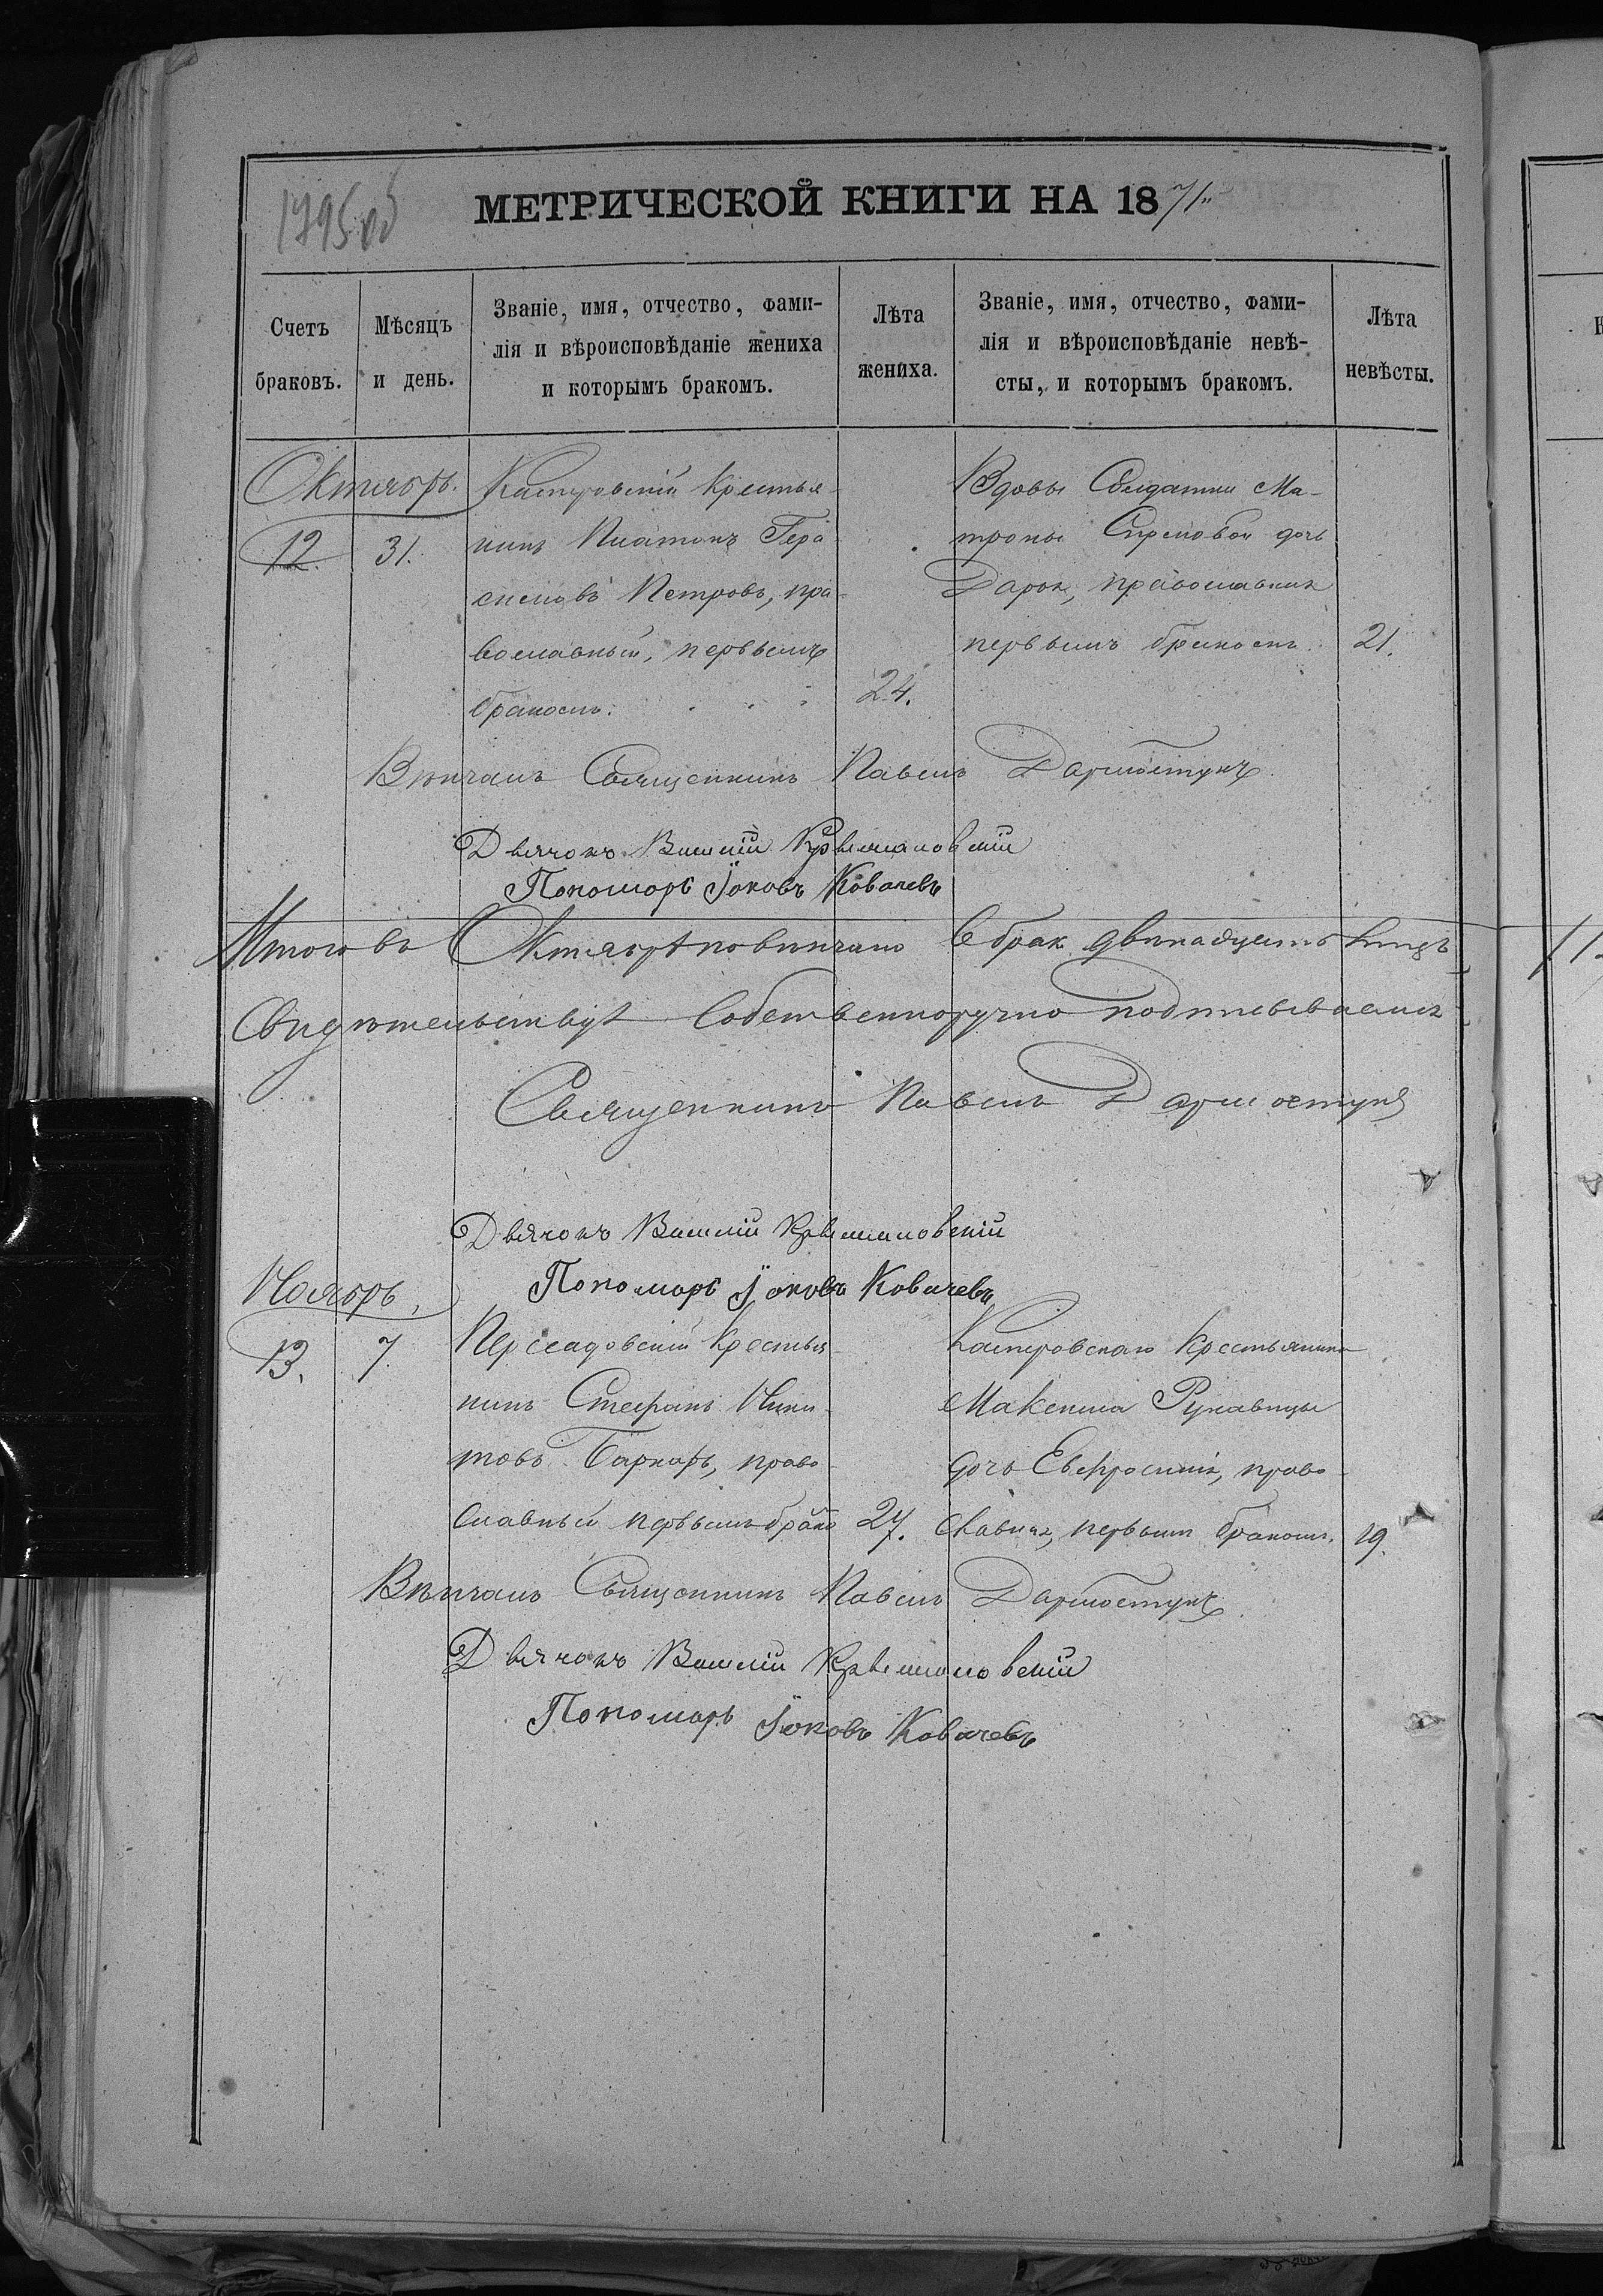 1795 об
МЕТРИЧЕСКОЙ КНИГИ НА 1871
Счетъ браковъ.
Мѣсяцъ и день.
Званіе, имя, отчество, фами-
лія и вѣроисповѣданіе жениха
и которымъ бракомъ.
Лѣта жениха.
Званіе, имя, отчество, фами-
лія и вѣроисповѣданіе невѣ-
сты, и которымъ бракомъ.
Лѣта невѣсты.
Октябрь.
12. 31.
Каспровскій Крестья-
нинъ Платонъ Гера-
симовъ Петровъ, пра-
вославный, первымъ
бракомъ. 24.
Вдовы Солдатки Ма-
троны дочь
Дарья, православная
первымъ бракомъ. 21.
Вѣнчалъ Священникъ Павелъ Дармостукъ
Дьячокъ Василій
Пономарь Іаковъ Ковачевъ
Итого въ Октябрѣ повѣнчано въ бракъ двѣнадцать лицъ
Свидѣтельствуя Собственноручно подписываемся
Священникъ Павелъ Дармостукъ
Дьячокъ Василій
Пономарь Іаковъ Ковачевъ
Ноябрь.
13. 7.
Пересадовскій Крестья-
нинъ Стефанъ Ники-
товъ Баркарь, право-
славный первымъ брако 27.
Каспровскаго Крестьянина
Максима Рукавицы
дочь Евфросинія, право-
славная, первымъ бракомъ. 19.
Вѣнчалъ Священникъ Павелъ Дармостукъ
Дьячокъ Василій
Пономарь Іаковъ Ковачевъ